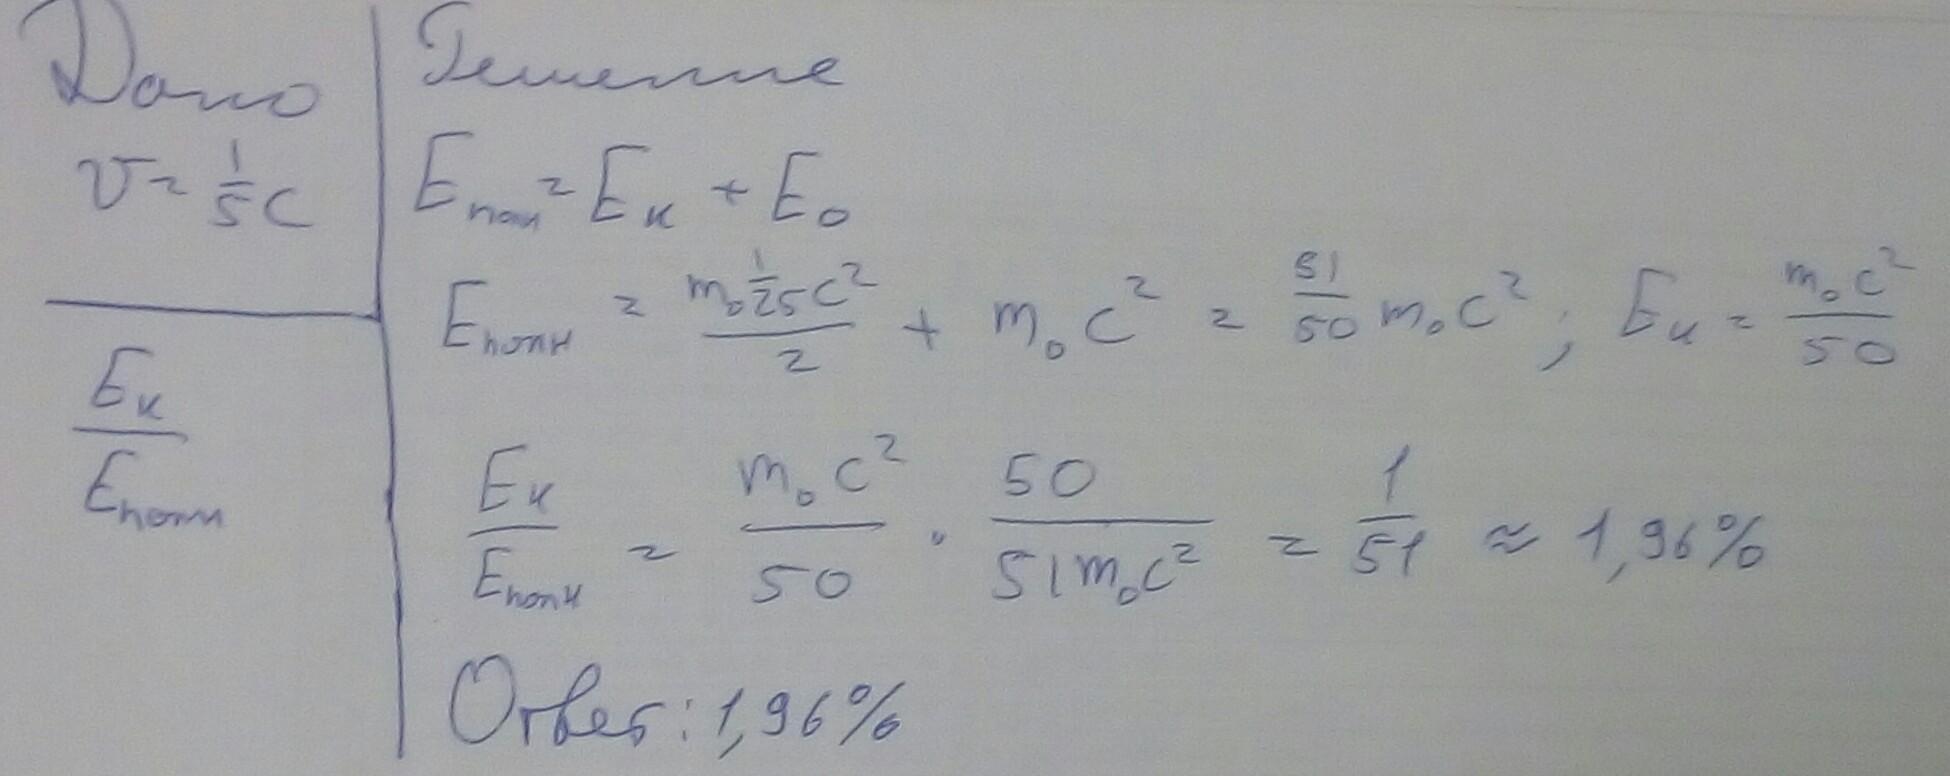 Дано
v = 1/5 c
Eк/Eполн
Решение
Eполн = Eк + E₀
Eполн = (m₀ 1/25 c²)/2 + m₀c² = 51/50 m₀c² ; Eк = m₀c²/50
Eк/Eполн = m₀c²/50 · 50/51m₀c² = 1/51 ≈ 1,96%
Ответ: 1,96%